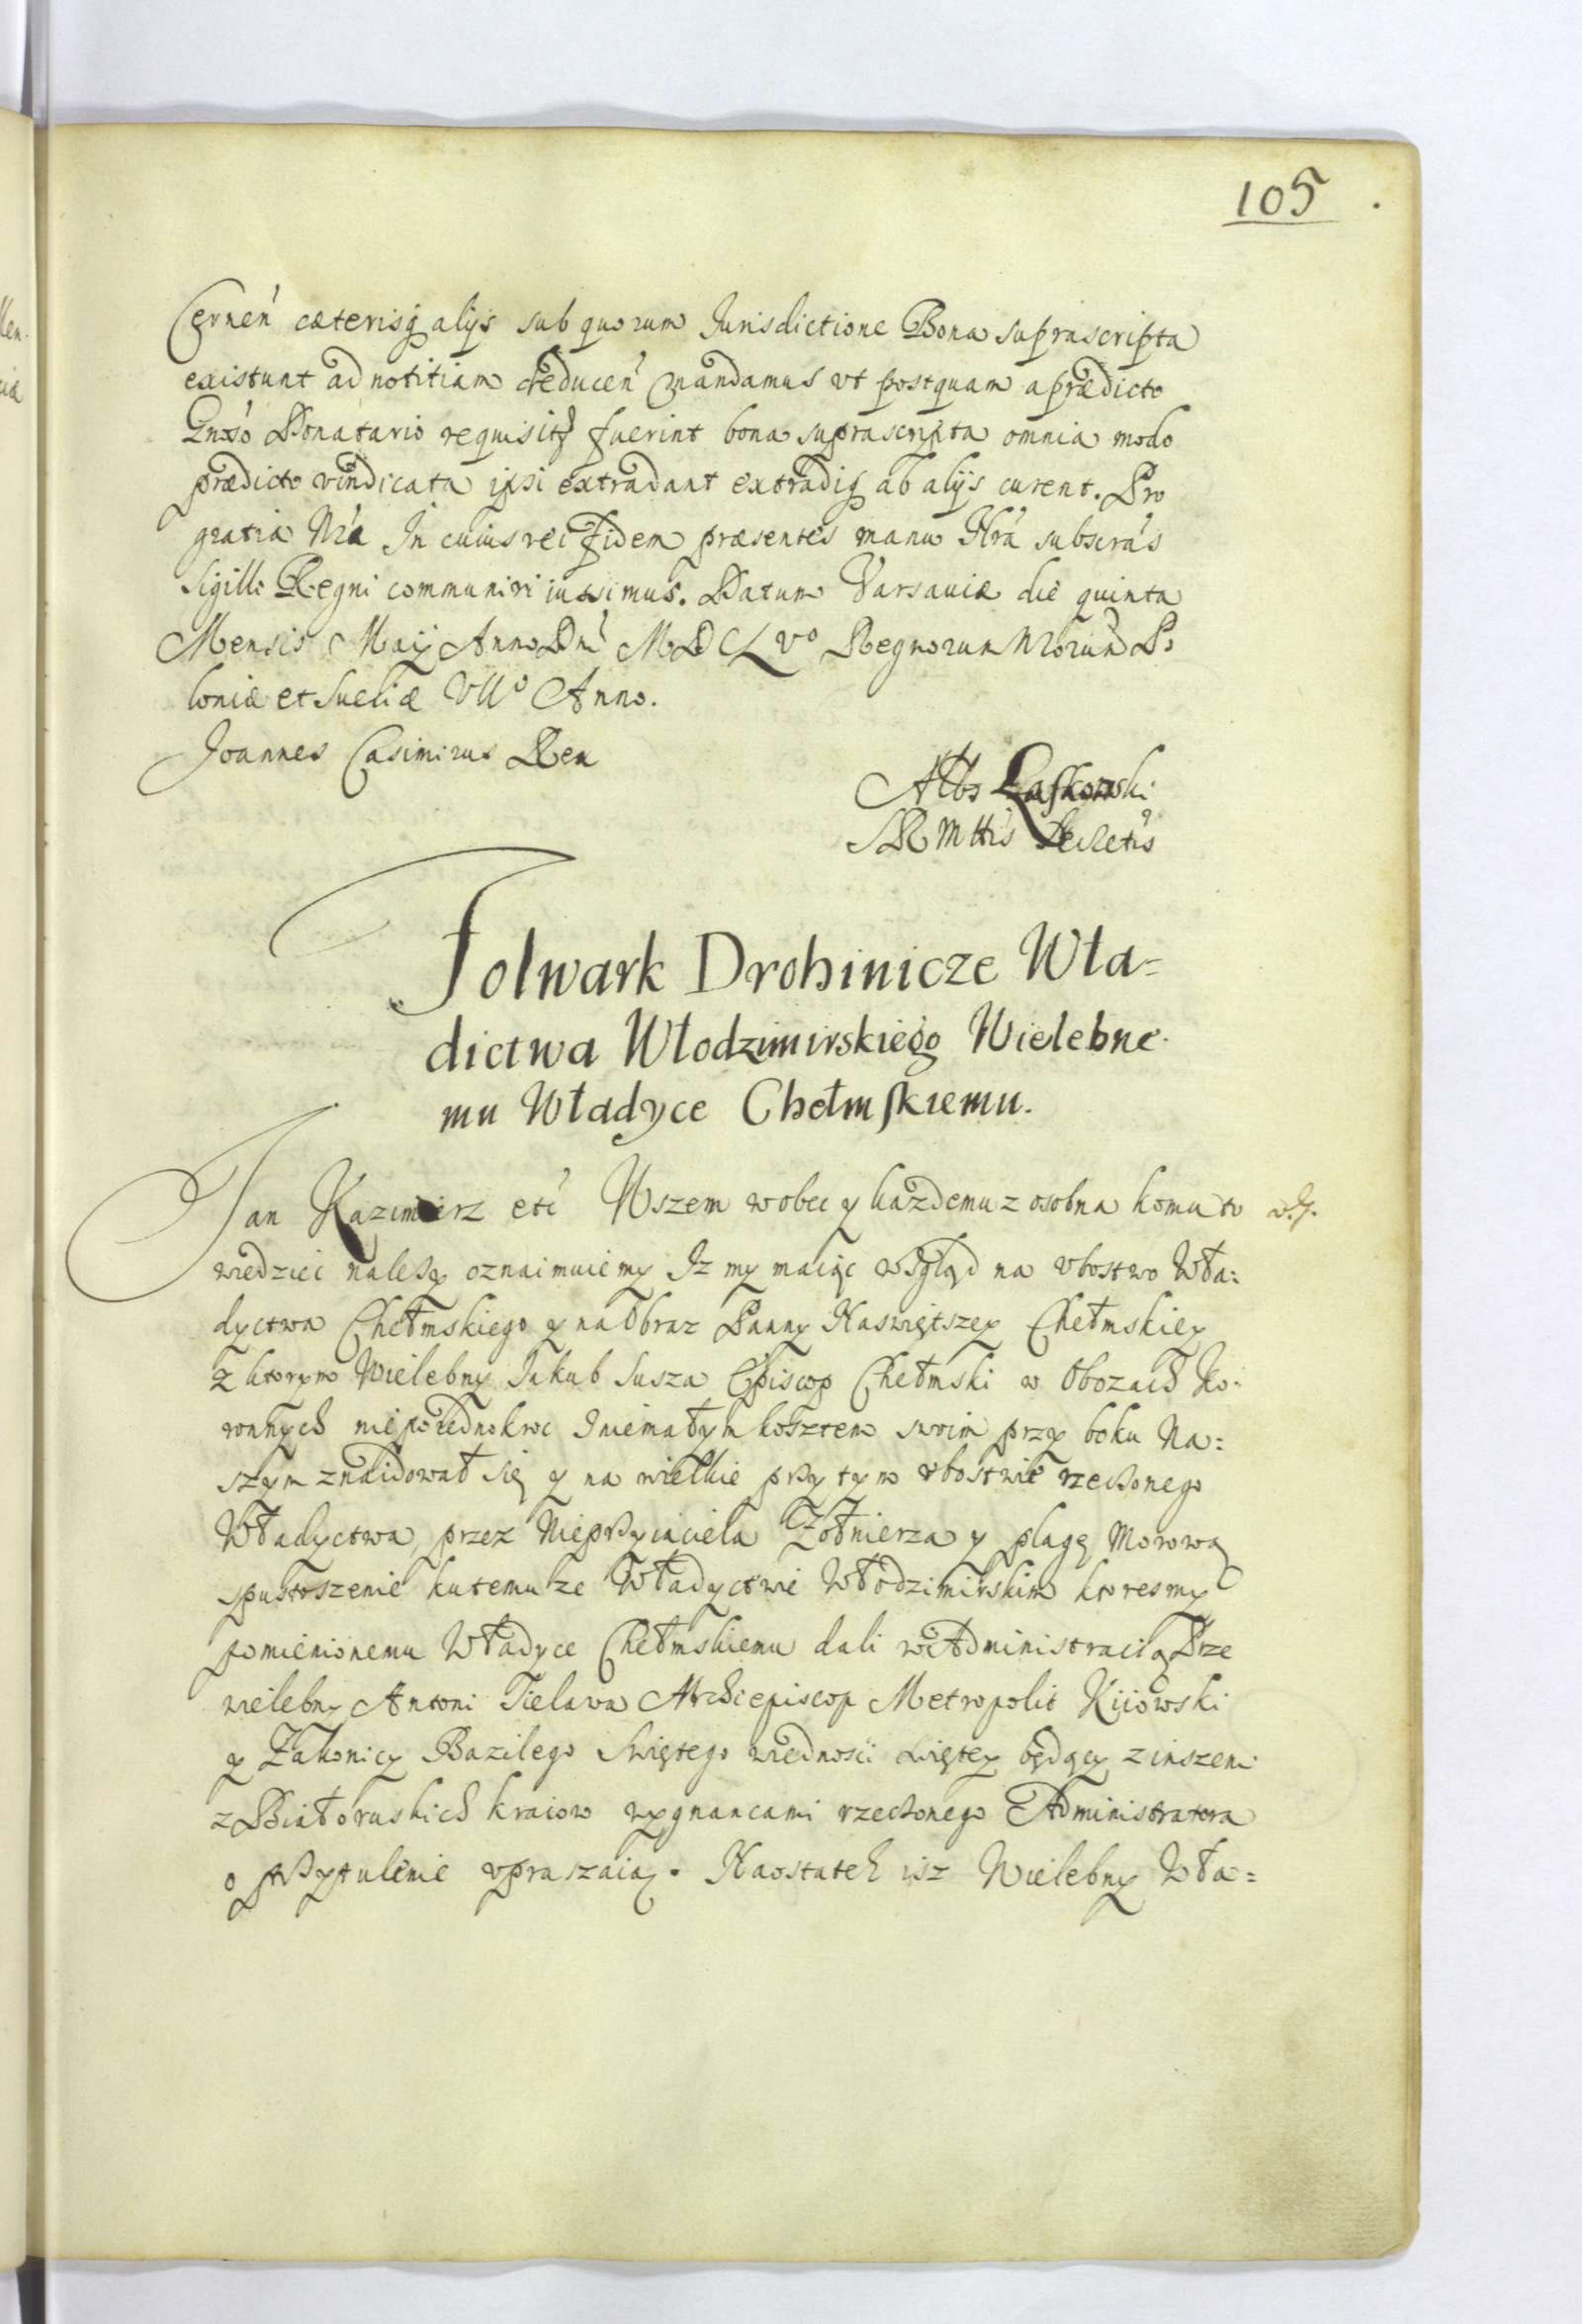 105
Cernen̄ cæterisq alijs sub quorum Jurisdictione Bona suprascripta
existunt ad notitiam deducen̄ mandamus vt postquam a prædicto
Gnoso Donatario requisiti fuerint bona suprascripta omnia modo
prædicto vindicata ipsi extradant extradiq ab alijs curent. Pro
gratia Nrā In cuius rei fidem præsentes manu Nrā subscrās
Sigillo Regni communiri iussimus. Datum Varsauiæ die quinta
Mensis Maij Anno Dnī MDCLVo Regnorum Nrorum Po
loniæ et Sueciæ VIIo Anno.
Joannes Casimirus Rex
Albs Laskowski
SRMttis Secretrs
Folwark Drohinicze Wła=
dictwa Włodzimirskiego Wielebne.
mu Władyce Chełmskiemu.
Jan Kazimierz etc Wszem wobec y kazdemu z osobna komu to
wiedziec nalezy oznaimuiemy Iz my maiąc wzgląd na vbostwo Wła=
dyctwa Chełmskiego y na Obraz Panny Naswiętszey Chełmskiey
z ktorym Wielebny Jakub Susza Episcop Chełmski w Obozach Ko=
ronnych niepoiednokroc I niemałym kosztem swoim przy boku Na=
szym znaidował się y na wielkie przy tym vbostwie rzeczonego
Władyctwa, przez Nieprzyiaciela Zołnierza y plagę Morową
spustoszenie ku temu ze Władyctwie Włodzimirskim ktoresmy
pomienionemu Władyce Chełmskiemu dali w Administracią Prze
wielebny Antoni Sielawa Archiepiscop Metropolit Kiiowski
y Zakonicy Bazilego Swiętego w iednosci swiętey będący z inszemi
z Białoruskich kraiow wygnancami rzeczonego Administratora
o przytulenie vpraszaią. Naostatek isz Wielebny Wła=